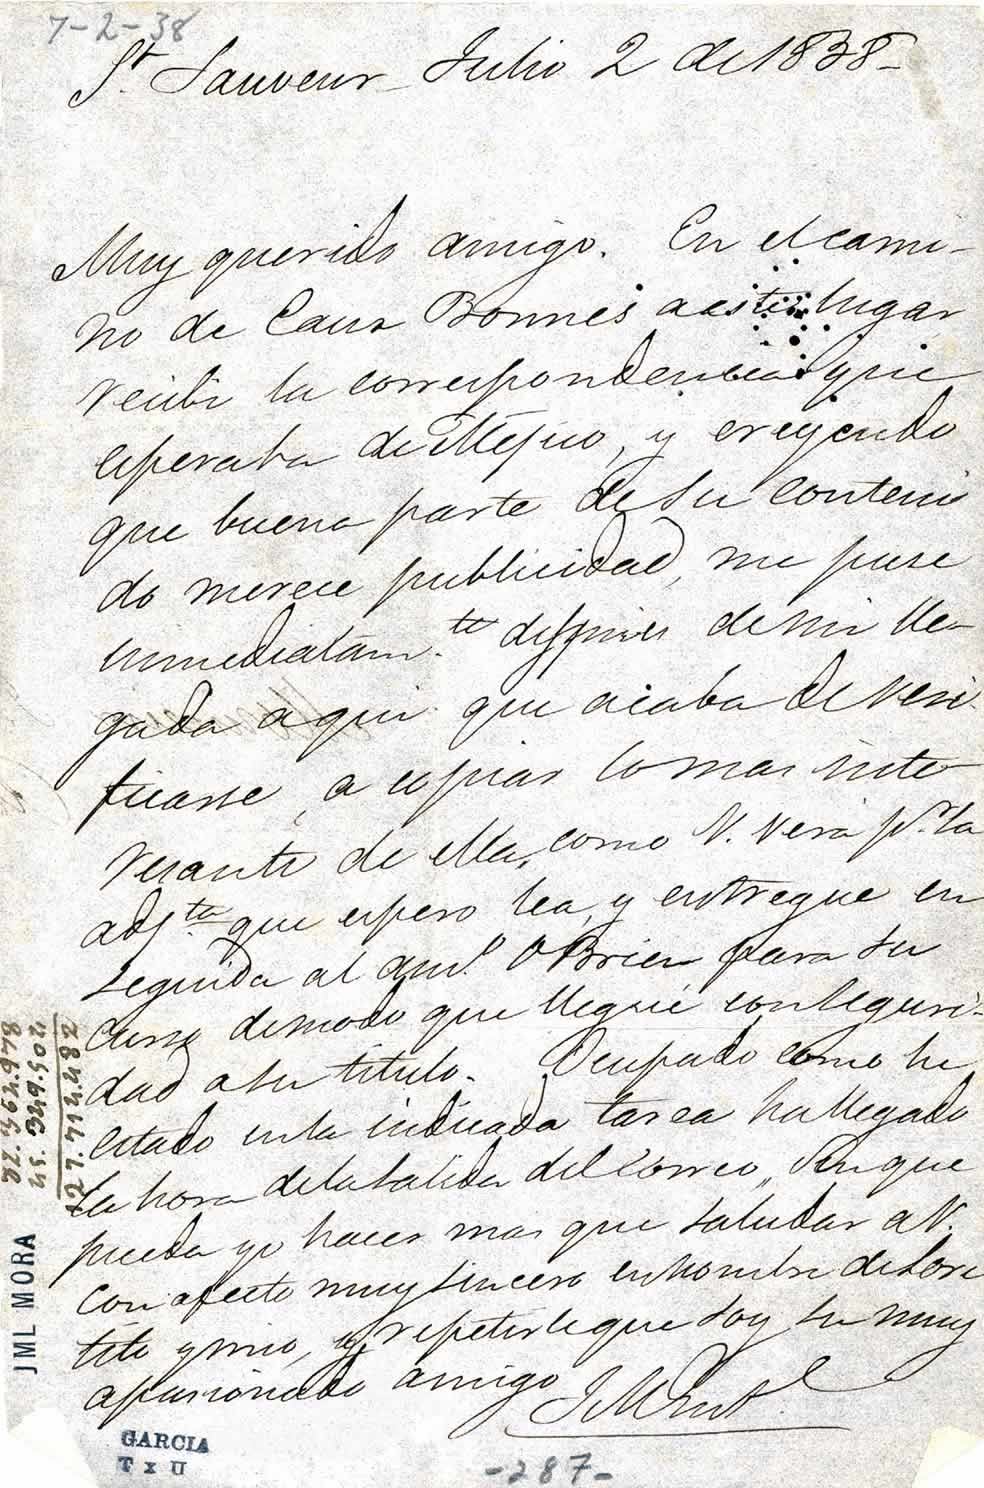 7-2-38
St. Sauveur - Julio 2 de 1838 -
Muy querido amigo. En el cami-
no de Eaux Bonnes a este lugar
recibi la correspondencia que
esperaba de Mejico, y creyendo
que buena parte de su conteni
do merece publicidad, me puse
inmediatam.te despues de mi lle-
gada aqui que acaba de veri
ficarse, a copiar lo mas inte-
resante de ella, como V. vera pr. la
adj.ta que espero lea, y entregue en
seguida al am.o O'Brien para su
curso de modo que llegue con seguri-
dad a su titulo. Ocupado como he
estado en la indicada tarea ha llegado
la hora de la salida del Correo, sin que
pueda yo hacer mas que saludar a V.
con afecto muy sincero en nombre de Lore
tito y mio, y repetirle que soy su muy
apasionado amigo
GARCIA
T x U
-287-
JML MORA
45.349.504
27.714.482